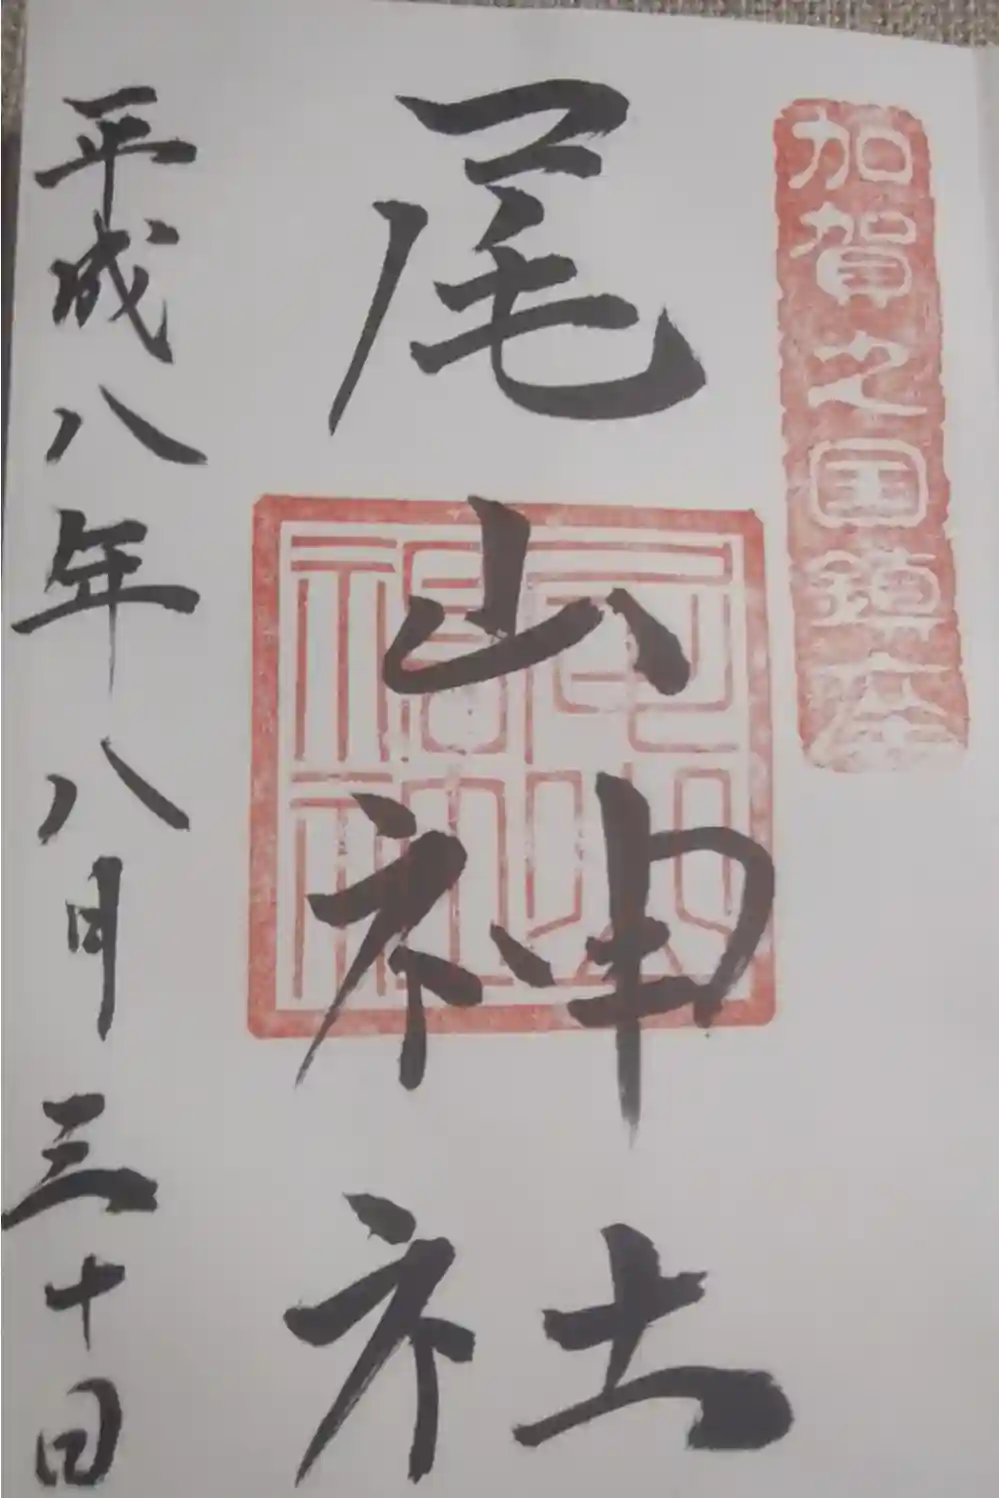 加賀之国鎮座
尾山神社
尾山神社
平成八年八月三十日